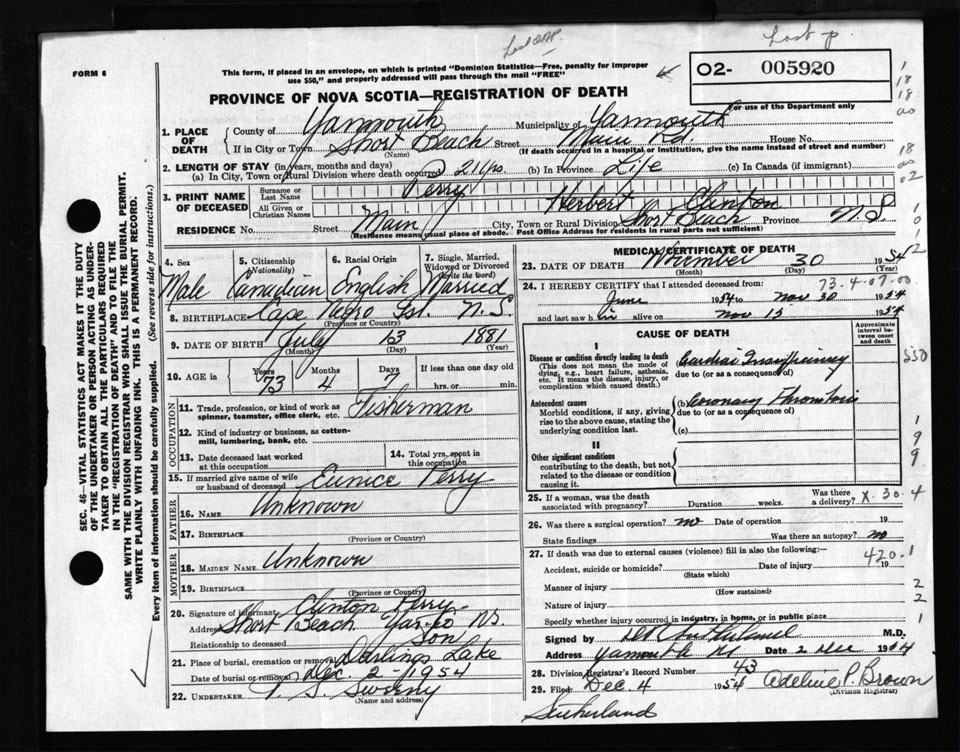 Last p.
FORM 6
This form, if placed in an envelope, on which is printed "Dominion Statistics—Free, penalty for improper
use $50," and properly addressed will pass through the mail "FREE"
O2- 005920
For use of the Department only
PROVINCE OF NOVA SCOTIA—REGISTRATION OF DEATH
1. PLACE OF DEATH
County of Yarmouth Municipality of Yarmouth
If in City or Town Short Beach Street Main St House No.
(Name) (If death occurred in a hospital or institution, give the name instead of street and number)
2. LENGTH OF STAY (in years, months and days)
(a) In City, Town or Rural Division where death occurred (b) In Province Life (c) In Canada (if immigrant)
3. PRINT NAME OF DECEASED
Surname or Last Name Perry
All Given or Christian Names Herbert Clinton
RESIDENCE No. Street Main City, Town or Rural Division Short Beach Province N.S.
(Residence means usual place of abode. Post Office Address for residents in rural parts not sufficient)
4. Sex Male
5. Citizenship (Nationality) Canadian
6. Racial Origin English
7. Single, Married, Widowed or Divorced (write the word) Married
8. BIRTHPLACE Cape Negro Isl. N.S.
(Province or Country)
9. DATE OF BIRTH July 13 1881
(Month) (Day) (Year)
10. AGE in Years 73 Months 4 Days 7 If less than one day old
hrs. or min.
OCCUPATION
11. Trade, profession, or kind of work as spinner, teamster, office clerk, etc. Fisherman
12. Kind of industry or business, as cotton-mill, lumbering, bank, etc.
13. Date deceased last worked at this occupation
14. Total yrs. spent in this occupation
15. If married give name of wife or husband of deceased Eunice Perry
FATHER
16. NAME Unknown
17. BIRTHPLACE
(Province or Country)
MOTHER
18. MAIDEN NAME Unknown
19. BIRTHPLACE
(Province or Country)
20. Signature of informant Clinton Perry
Address Short Beach Yar. Co NS.
Relationship to deceased Son
21. Place of burial, cremation or removal Darlings Lake
Date of burial or removal Dec. 2 1954
22. UNDERTAKER Sweeny
(Name and address)
MEDICAL CERTIFICATE OF DEATH
23. DATE OF DEATH November 30 1954
(Month) (Day) (Year)
73.4.07.00
24. I HEREBY CERTIFY that I attended deceased from:
June 1954 to Nov 30 1954
and last saw h im alive on Nov 15 1954
CAUSE OF DEATH
Approximate interval between onset and death
I
Disease or condition directly leading to death
(This does not mean the mode of dying, e.g., heart failure, asthenia, etc. It means the disease, injury, or complication which caused death.)
(a) Cardiac Insufficiency
due to (or as a consequence of)
550
Antecedent causes
Morbid conditions, if any, giving rise to the above cause, stating the underlying condition last.
(b) Coronary Thrombosis
due to (or as a consequence of)
(c)
II
Other significant conditions
contributing to the death, but not related to the disease or condition causing it.
25. If a woman, was the death associated with pregnancy? Duration weeks. Was there a delivery?
X.30.4
26. Was there a surgical operation? no Date of operation 19
State findings Was there an autopsy? no
27. If death was due to external causes (violence) fill in also the following:—
420.1
Accident, suicide or homicide? Date of injury 19
(State which)
Manner of injury
(How sustained)
Nature of injury
Specify whether injury occurred in industry, in home, or in public place
Signed by M.D.
Address Yarmouth NS Date 2 Dec 1954
28. Division Registrar's Record Number 43
29. Filed Dec. 4 1954 Adeline P. Brown
(Division Registrar)
Sutherland
SEC. 46—VITAL STATISTICS ACT MAKES IT THE DUTY
OF THE UNDERTAKER OR PERSON ACTING AS UNDER-
TAKER TO OBTAIN ALL THE PARTICULARS REQUIRED
IN THE "REGISTRATION OF DEATH" AND TO FILE THE
SAME WITH THE DIVISION REGISTRAR WHO SHALL ISSUE THE BURIAL PERMIT.
WRITE PLAINLY WITH UNFADING INK. THIS IS A PERMANENT RECORD.
Every item of information should be carefully supplied. (See reverse side for instructions.)